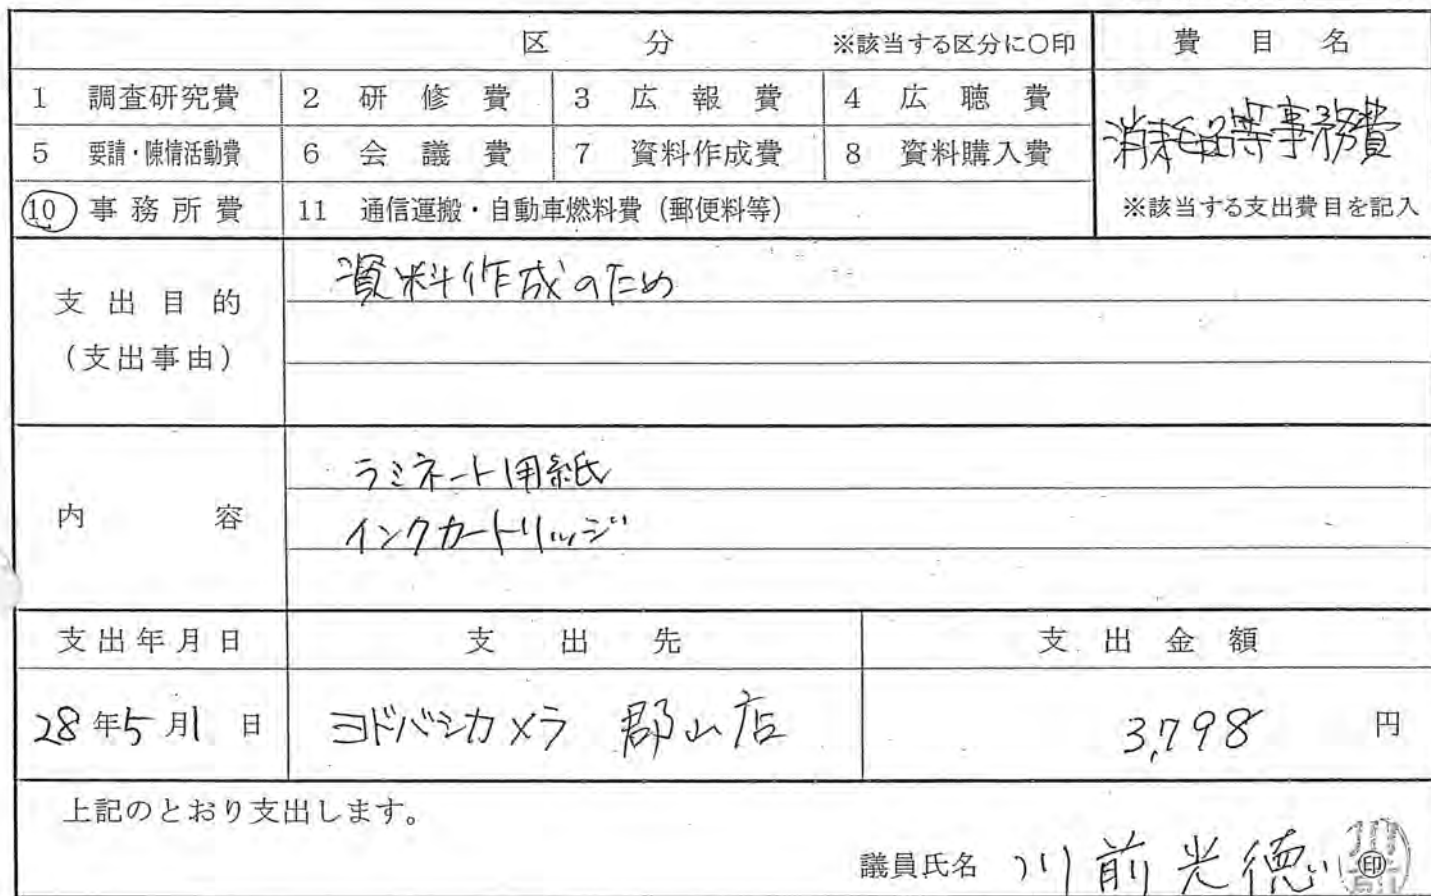 区分 ※該当する区分に○印 費目名
1 調査研究費 2 研修費 3 広報費 4 広聴費
消耗品等事務費
5 要請・陳情活動費 6 会議費 7 資料作成費 8 資料購入費
10 事務所費 11 通信運搬・自動車燃料費（郵便料等） ※該当する支出費目を記入
支出目的
（支出事由）
資料作成のため
内容
ラミネート用紙
インクカートリッジ
支出年月日 支出先 支出金額
28年5月1日 ヨドバシカメラ 郡山店 3,798 円
上記のとおり支出します。
議員氏名 川前光徳 ㊞
川前